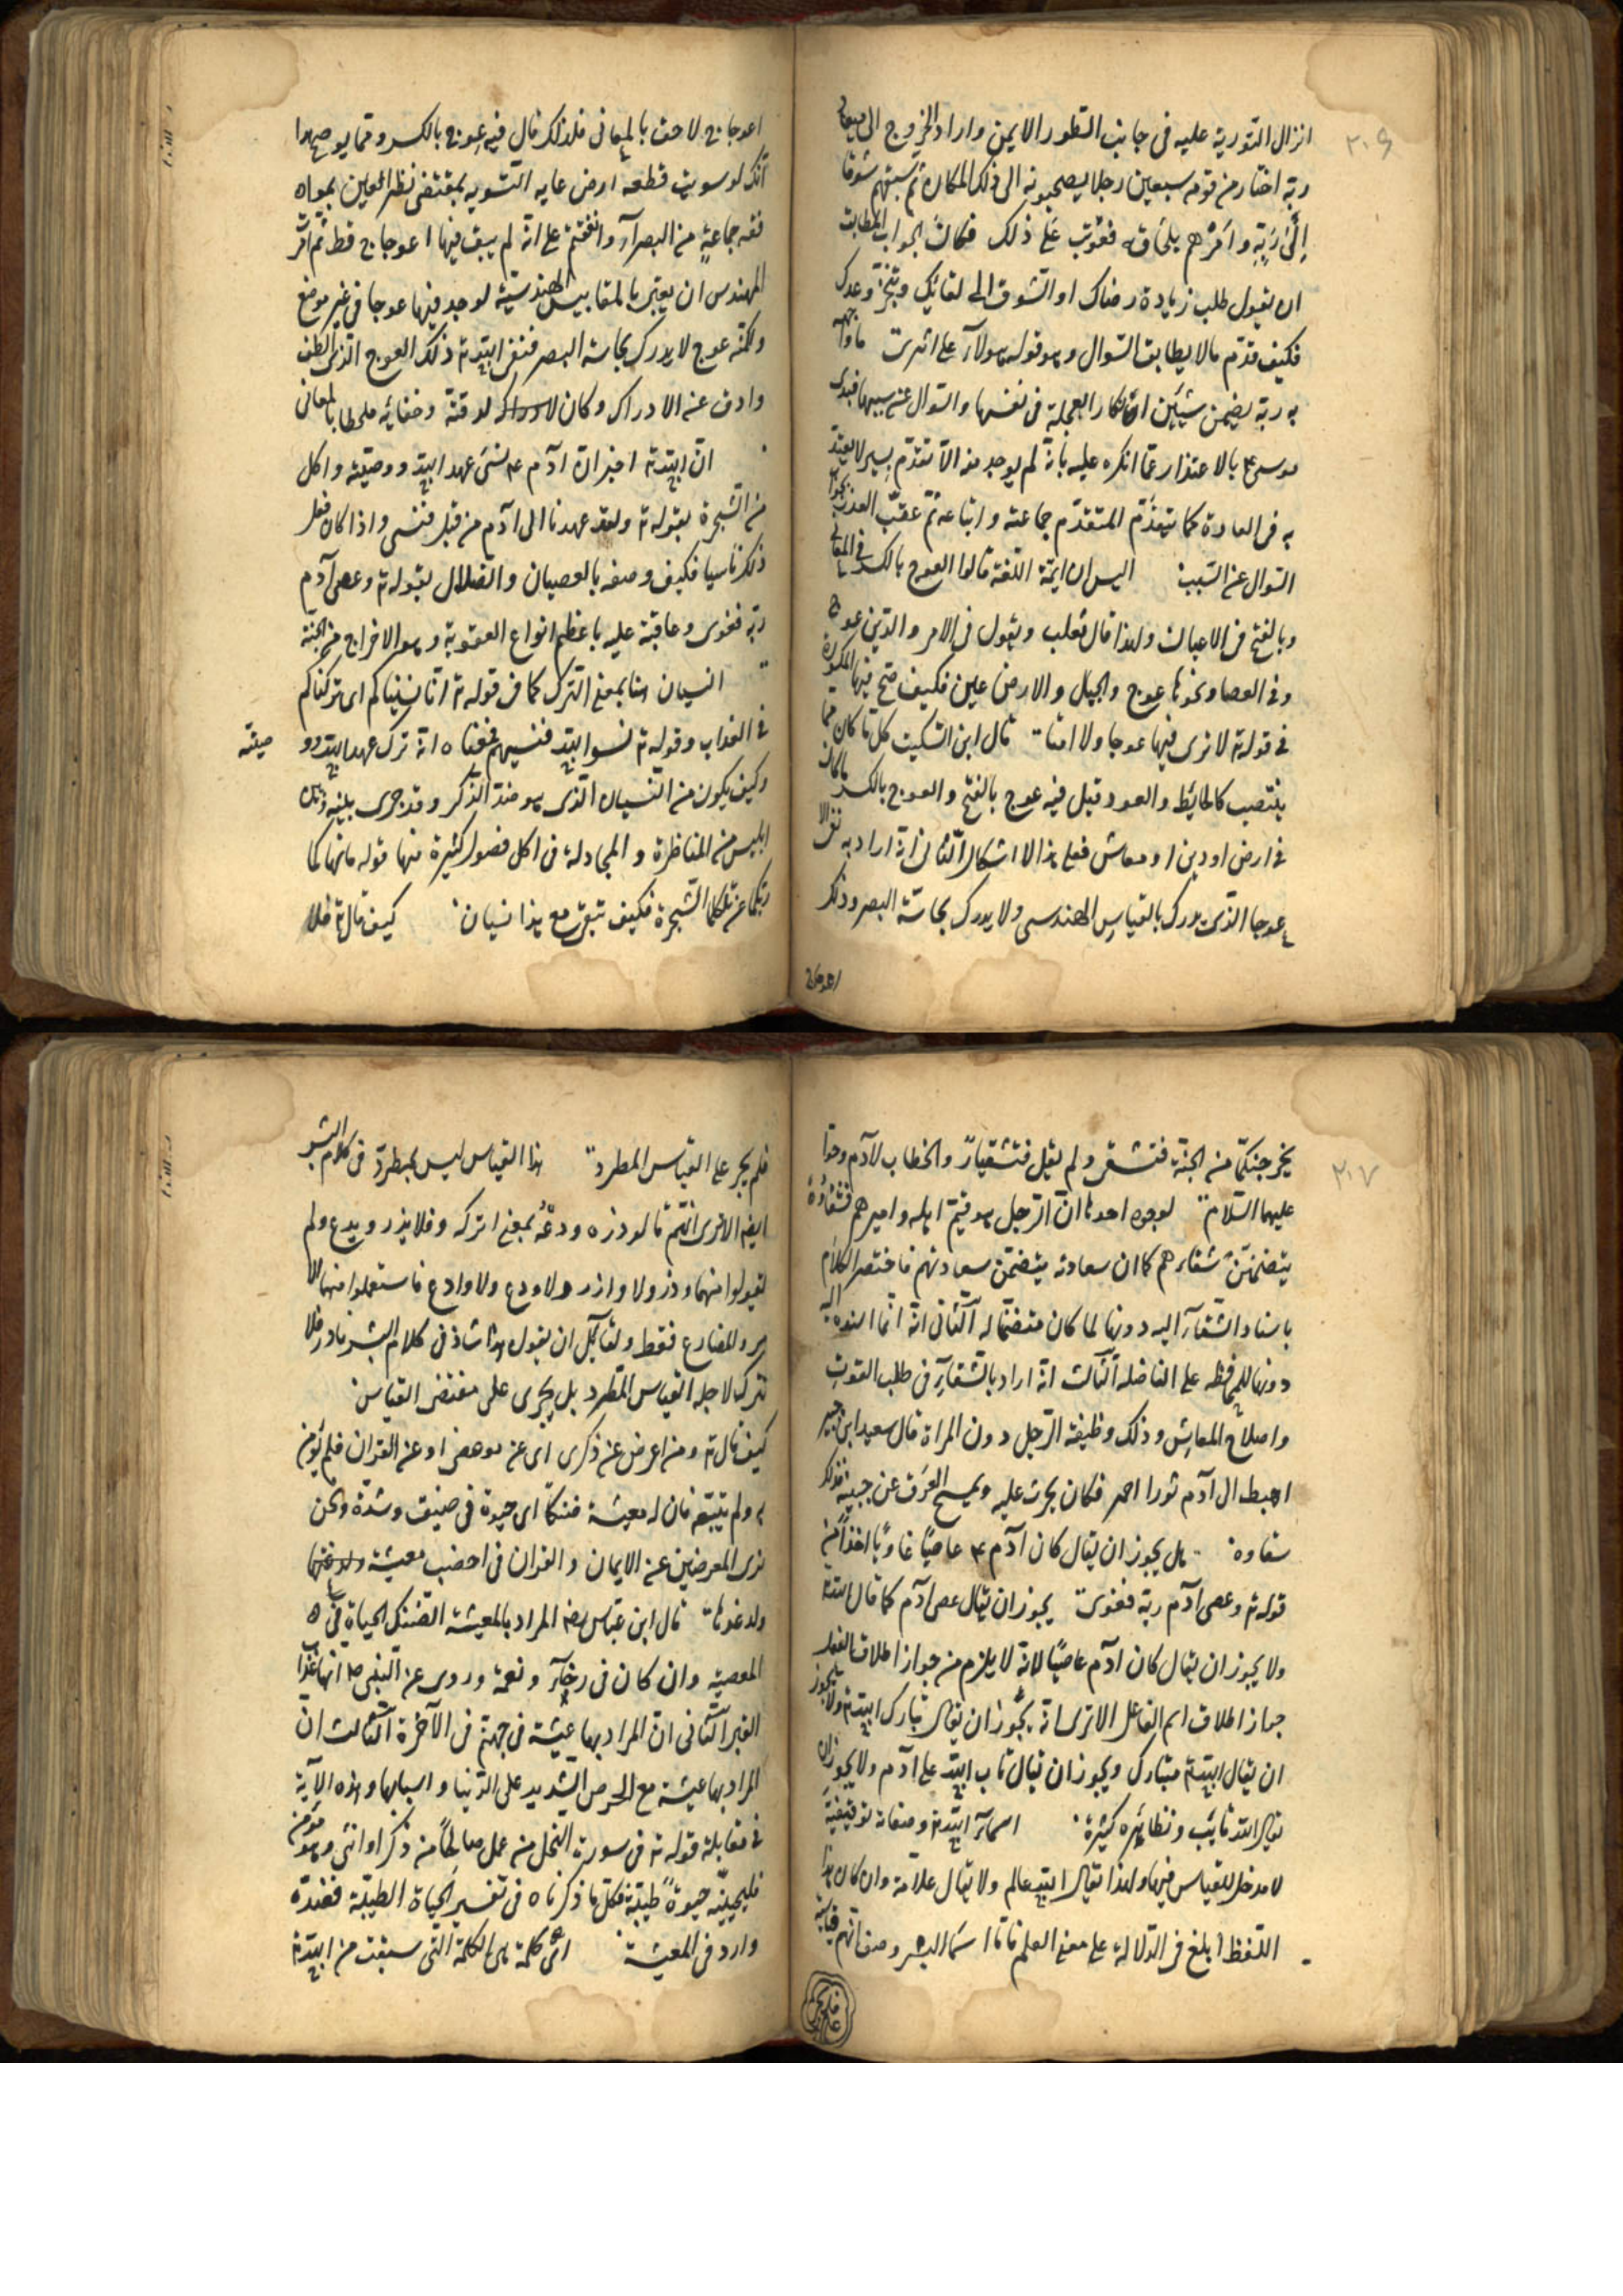 ٢٠٦
انزال التورية عليه فى جانب الطور الايمن واراد الخروج الى ميعاد
ربه اختار من قومه سبعين رجلا يصحبونه الى ذلك المكان ثم سبقهم شوقا
الى ربه وامرهم بلحاقه فعوتب على ذلك فكان الجواب المطابق
ان يقول طلب زيادة رضاك او الشوق الى لقائك وتنجز وعدك
فكيف قدم مالا يطابق السوال وهو قوله هم اولاء على اثرى ما واجهه
به ربه يضمن شيئين انكار العجلة فى نفسها والسوال عن سببها فبدى
موسى ع بالاعتذار عما انكره عليه بانه لم يوجد منه الا تقدم يسير لا يعتد
به فى العادة كما يتقدم المتقدم جماعته واتباعه ثم عقب العذر بجواب
السوال عن السبب اليس ان ايمة اللغة قالوا العوج بالكسر فى المعانى
وبالفتح فى الاعيان ولهذا قال ثعلب ويقول فى الامر والدين عوج
وفى العصا ونحوها عوج والجبل والارض عين فكيف صح فيها المكسورة
فى قوله ته لا ترى فيها عوجا ولا امتا قال ابن السكيت كل ما كان مما
ينتصب كالحايط والعود قيل فيه عوج بالفتح والعوج بالكسر ما كان
فى ارض او دين او معاش فعلى هذا لا اشكال الثانى انه اراد به نفى الا
عوجا الذى يدرك بالقياس الهندسى ولا يدرك بحاسة البصر وذلك
اعوجاج
اعوجاج لاحق بالمعانى فلذلك قال فيه عوج بالكسر ومما يوضح هذا
انك لو سويت قطعة ارض غاية التسويه بمقتضى نظر العين بموافـ
فقة جماعة من البصرآء واتفقتم على انه لم يبق فيها اعوجاج قط ثم امر
المهندس ان يعتبر بالمقاييس الهندسية لوجد فيها عوجا فى غير موضع
ولكنه عوج لا يدرك بحاسة البصر فنفى الله ته ذلك العوج الذى لطف
وادق عن الادراك وكان لادراكه لدقته وخفائه ملحقا بالمعانى
ان الله ته اخبر ان آدم ع نسى عهد الله ووصيته واكل
من الشجرة بقوله ته ولقد عهدنا الى آدم من قبل فنسى واذا كان فعل
ذلك ناسيا فكيف وصفه بالعصيان والضلال بقوله ته وعصى آدم
ربه فغوى وعاقبه عليه باعظم انواع العقوبة وهو الاخراج من الجنة
النسيان هنا بمعنى الترك كما فى قوله ته انا نسيناكم اى تركناكم
فى العذاب وقوله ته نسوا الله فنسيهم فمعناه انه ترك عهد الله وو صيته
وكيف يكون من النسيان الذى هو ضد الذكر وقد جرى بينه وبين
ابليس من المناظرة والمجادلة فى اكل فصول كثيرة منها قوله ما نهاكما
ربكما عن تلكما الشجرة فكيف تبقى مع هذا نسيان كيف قال ته فلا
٢٠٧
يخرجنكما من الجنة فتشقى ولم يقل فتشقيا والخطاب لآدم وحوا
عليهما السلام لوجوه احدها ان الرجل هو قيم اهله واميرهم فشقاؤه
يتضمن شقاءهم كما ان سعادته يتضمن سعادتهم فاختصر الكلام
باسناد الشقآء اليه دونها لما كان متضمنا له الثانى انه انما اسنده اليه
دونها للمحافظة على الفاصلة الثالث انه اراد بالشقآء فى طلب القوت
واصلاح المعايش وذلك وظيفة الرجل دون المراة قال سعيد ابن جبير
اهبط الى آدم ثورا احمر فكان يحرث عليه ويمسح العرق عن جبينه فذلك
شقاوه هل يجوز ان يقال كان آدم ع عاصيا غاويا اخذا من
قوله ته وعصى آدم ربه فغوى يجوز ان يقال عصى آدم كما قال الله ته
ولا يجوز ان يقال كان آدم عاصيا لانه لا يلزم من جواز اطلاق الفعل
جواز اطلاق اسم الفاعل الا ترى انه يجوز ان يقال تبارك الله ته ولا يجوز
ان يقال الله ته متبارك ويجوز ان يقال تاب الله على آدم ولا يجوز ان
يقال الله تايب ونظائره كثيرة اسمآء الله ته وصفاته توقيفية
لا مدخل للقياس فيها ولهذا يقال الله عالم ولا يقال علامة وان كان هذا
اللفظ ابلغ فى الدلالة على معنى العلم فاما اسما البشر وصفاتهم قياسية
فلم يجر على
فلم يجر على القياس المطرد هذا القياس ليس بمطرد فى كلام البشر
ايضا الا ترى انهم قالوا ذره ودعه بمعنى اتركه وفلا يذر ويدع ولم
يقولوا منهما وذر ولا واذر ولا ودع ولا وادع فاستعملوا منهما الا
مر والمضارع فقط ولقآئل ان يقول هذا شاذ فى كلام البشر نادر فلا
يترك لاجله القياس المطرد بل يجرى على مقتضى القياس
كيف قال ته ومن اعرض عن ذكرى اى عن موعظتى او عن القران فلم يؤمن
به ولم يتبعه فان له معيشة ضنكا اى حيوة فى ضيق وشدة ونحن
نرى المعرضين عن الايمان والقران فى اخصب معيشة وارغدها
قال ابن عباس رضه المراد بالمعيشة الضنك الحياة فى
المعصية وان كان فى رخآء ونعمة وروى عن النبى ص انها عذاب
القبر الثانى ان المراد بها عيشة فى جهنم فى الآخرة الثالث ان
المراد بها عيشة مع الحرص الشديد على الدنيا واسبابها وهذه الآية
فى مقابلة قوله ته فى سورة النحل من عمل صالحا من ذكر او انثى وهو مؤمن
فليحيينه حيوة طيبة فكل ما ذكرناه فى تفسير الحياة الطيبة فضده
وارد فى المعيشة اى كلمة هى الكلمة التى سبقت من الله ته